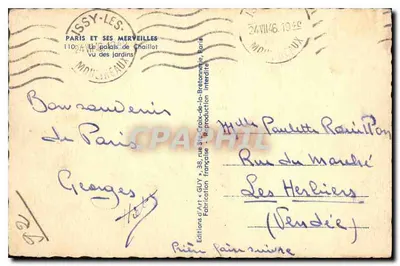 ISSY-LES-
MOULINEAUX
24 VII 46
MOULINEAUX
PARIS ET SES MERVEILLES
Le palais de Chaillot
vu des jardins
Bon souvenir
de Paris
Georges
Editions d'Art "GUY", 38, rue Ste-Croix-de-la-Bretonnerie, Paris
Fabrication française - Reproduction interdite
CPAPHIL
Melle Paulette
Rue du Marché
Les Herbiers
(Vendée)
Prière faire suivre